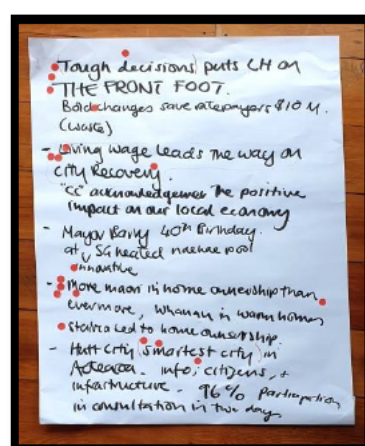 Tough decisions puts LH on
THE FRONT FOOT.
Bold changes save ratepayers $10 M.
(waste)
- Living wage leads the way on
city Recovery.
"CC" acknowledgemes the positive
impact on our local economy
- Mayor Barry 40th Birthday.
at SG heated naenae pool
innovative
- More maori in home ownership than
evermore, whanau in warm homes
stairs led to home ownership.
- Hutt City (smartest city) in
Aotearoa. info, citizens, +
infrastructure. 96% participation
in consultation in two days